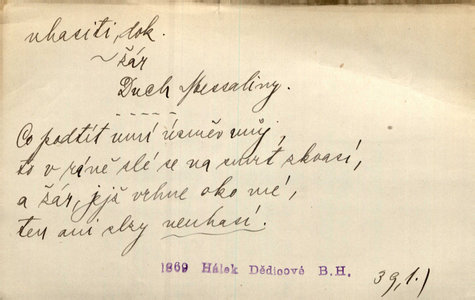 uhasiti, dok.
~ žár
Duch Messaliny.
Co podtít umí úsměv můj,
to v ráně své se na smrt zkvasí,
a žár, jejž vrhne oko mé,
ten ani slzy neuhasí.
1869 Hálek Dědicové B.H.
39,1.)